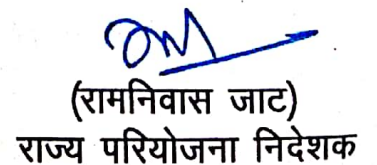 (रामनिवास जाट)
राज्य परियोजना निदेशक